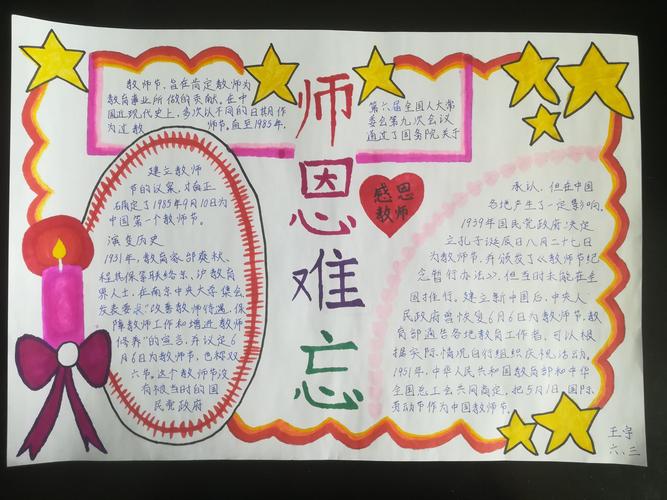 教师节,旨在肯定教师为
教育事业所做的贡献。在中
国近现代史上,多次以不同的日期作
为过教 师节。直至1985年,
第六届全国人大常
委会第九次会议
通过了国务院关于
建立教师
节的议案,才真正
确定了1985年9月10日为
中国第一个教师节。
演变历史
1931年,教育家邰爽秋、
程其保等联络京、沪教育
界人士,在南京中央大学集会,
发表要求"改善教师待遇,保
障教师工作和增进教师
修养"的宣言,并议定6
月6日为教师节,也称双
六节。这个教师节没
有被当时的国
民党政府
师
恩
难
忘
感恩
教师
承认,但在中国
各地产生了一定影响。
1939年国民党政府决定
立孔子诞辰日八月二十七日
为教师节,并颁发了《教师节纪
念暂行办法》,但当时未能在全
国推行。建立新中国后,中央人
民政府曾恢复6月6日为教师节,教
育部通告各地教育工作者,可以根
据实际情况自行组织庆祝活动。
1951年,中华人民共和国教育部和中华
全国总工会共同商定,把5月1日国际
劳动节作为中国教师节。
王宇
六、三